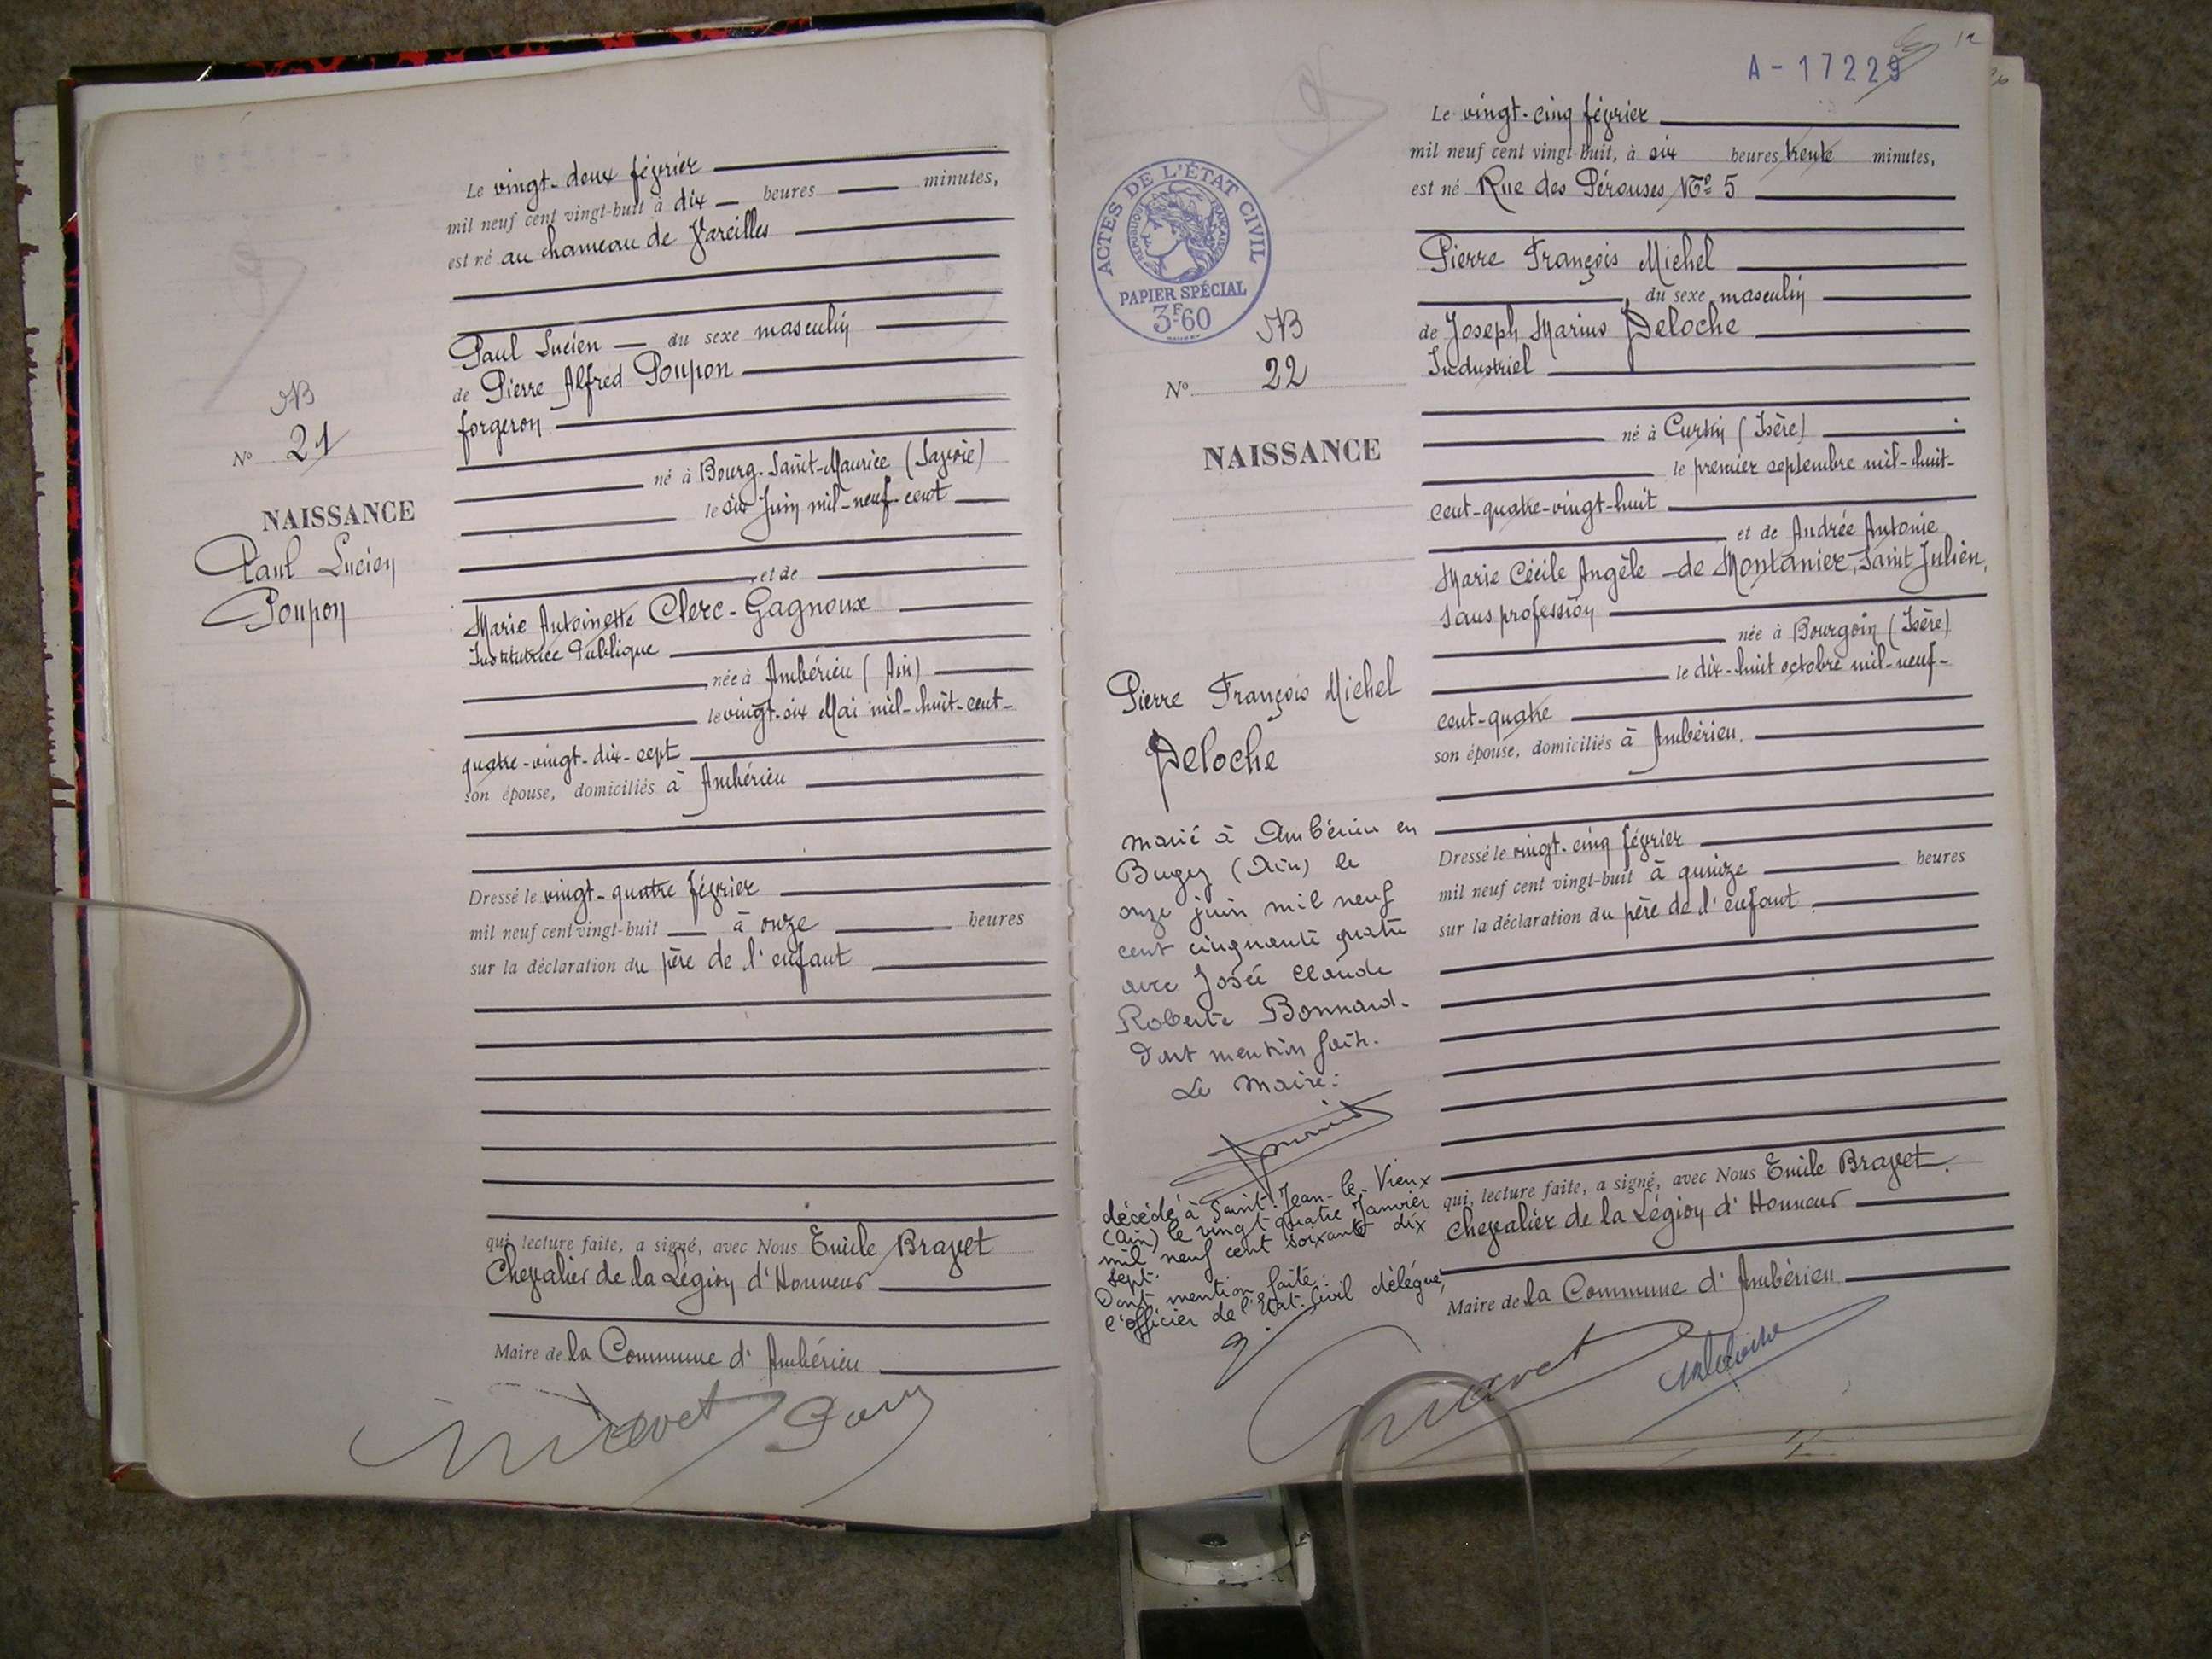 NB
N° 21
NAISSANCE
Paul Lucien
Poupon
Le vingt-deux février
mil neuf cent vingt-huit à dix heures minutes,
est né au hameau de Vareilles
Paul Lucien du sexe masculin
de Pierre Alfred Poupon
forgeron
né à Bourg-Saint-Maurice (Savoie)
le six Juin mil-neuf-cent
et de
Marie Antoinette Clerc-Gagnoux
Institutrice Publique
née à Ambérieu (Ain)
le vingt-six Mai mil-huit-cent-
quatre-vingt-dix-sept
son épouse, domiciliés à Ambérieu
Dressé le vingt-quatre février
mil neuf cent vingt-huit à onze heures
sur la déclaration du père de l'enfant
qui, lecture faite, a signé, avec Nous Emile Bravet
Chevalier de la Légion d'Honneur
Maire de la Commune d'Ambérieu
A-17229
ACTES DE L'ÉTAT CIVIL
RÉPUBLIQUE FRANÇAISE
PAPIER SPÉCIAL
3F60
NB
N° 22
NAISSANCE
Pierre François Michel
Deloche
marié à Ambérieu en
Bugey (Ain) le
onze juin mil neuf
cent cinquante quatre
avec Josée Claude
Roberte Bonnard.
Dont mention faite.
Le Maire:
décédé à Saint-Jean-le-Vieux
(Ain) le vingt quatre Janvier
mil neuf cent soixante dix
sept.
Dont mention faite:
l'officier de l'Etat-Civil délégué,
Le vingt-cinq février
mil neuf cent vingt-huit, à six heures trente minutes,
est né Rue des Pérouses N° 5
Pierre François Michel
, du sexe masculin
de Joseph Marius Deloche
Industriel
né à Curtin (Isère)
le premier septembre mil-huit-
cent-quatre-vingt-huit
et de Andrée Antonie
Marie Cécile Angèle de Montanier, Saint Julien,
sans profession
née à Bourgoin (Isère)
le dix-huit octobre mil-neuf-
cent-quatre
son épouse, domiciliés à Ambérieu.
Dressé le vingt-cinq février
mil neuf cent vingt-huit à quinze heures
sur la déclaration du père de l'enfant
qui, lecture faite, a signé, avec Nous Emile Bravet.
Chevalier de la Légion d'Honneur
Maire de la Commune d'Ambérieu